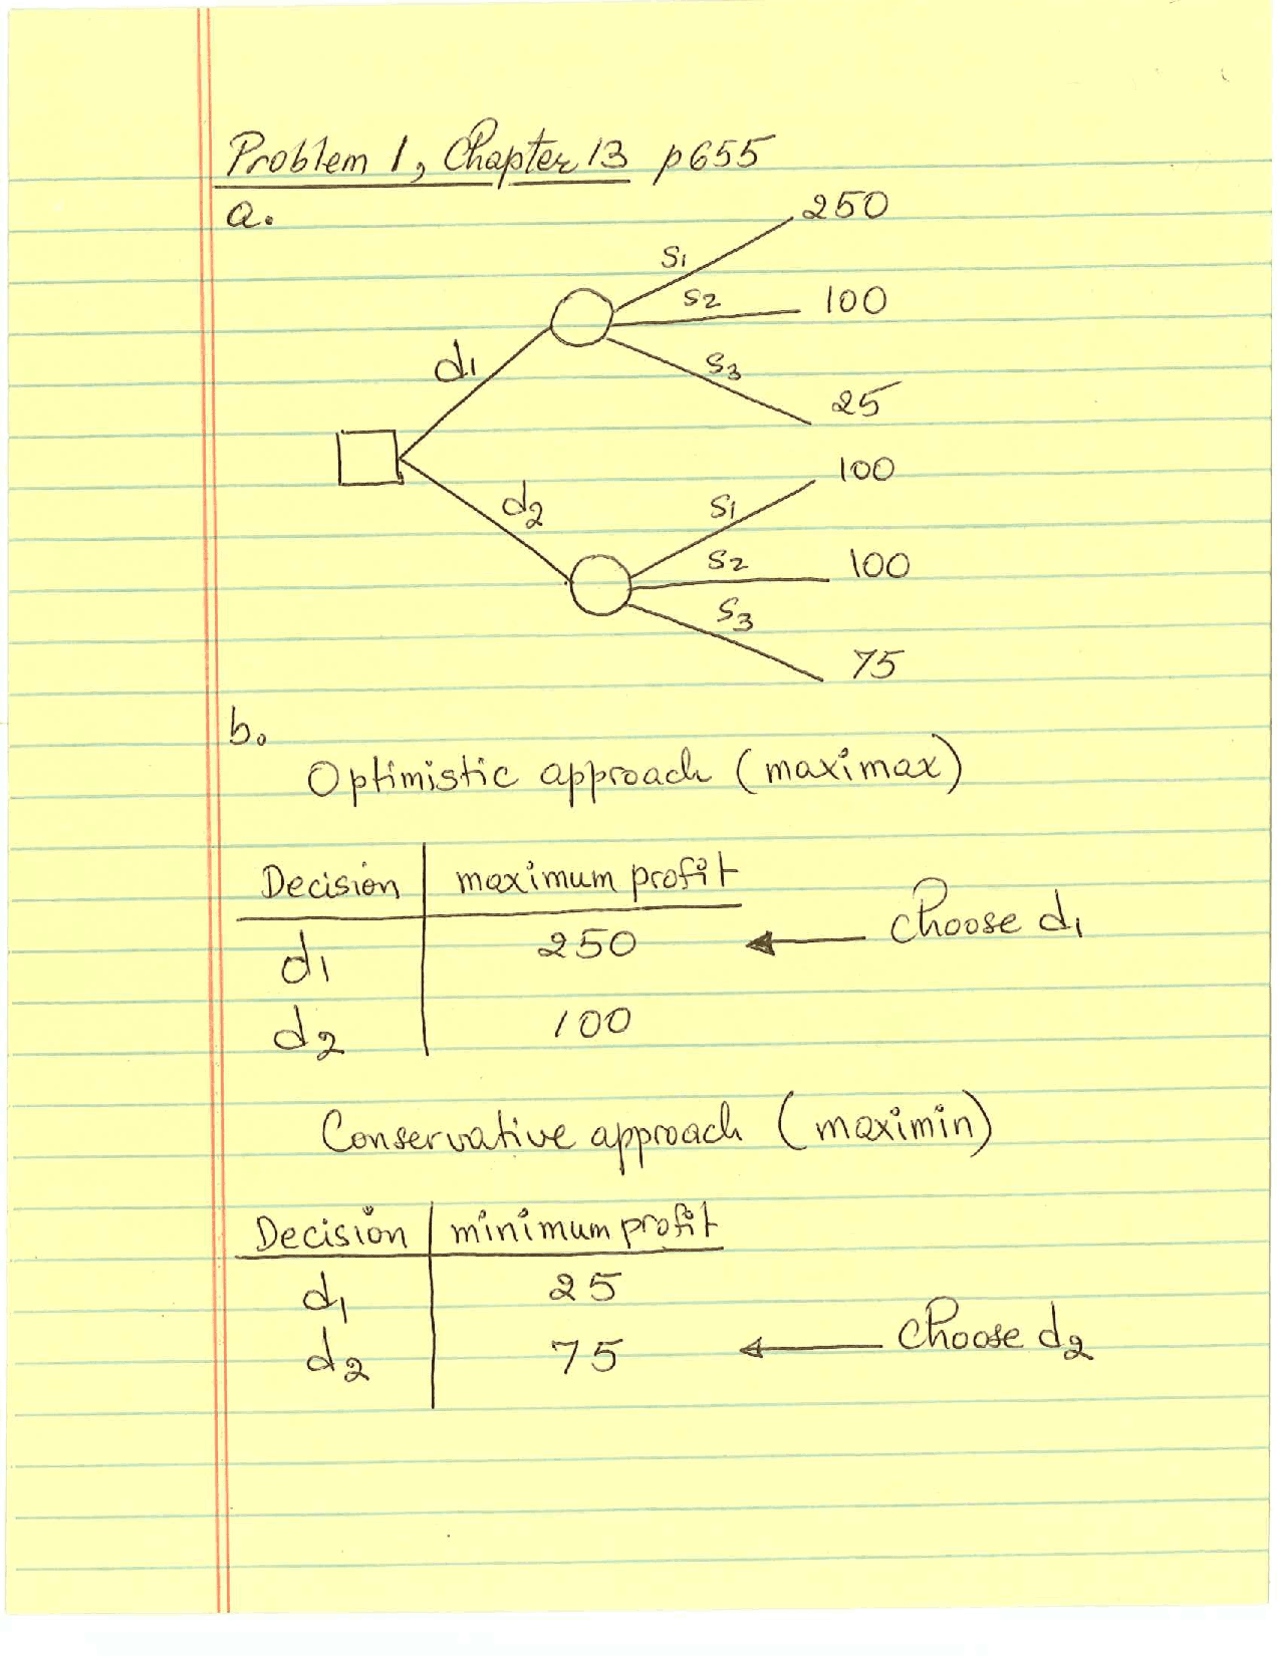 Problem 1, Chapter 13 p655
a.
250
S1
S2 100
d1
S3
25
100
d2
S1
S2 100
S3
75
b.
Optimistic approach (maximax)
Decision maximum profit
d1 250 Choose d1
d2 100
Conservative approach (maximin)
Decision minimum profit
d1 25
d2 75 Choose d2